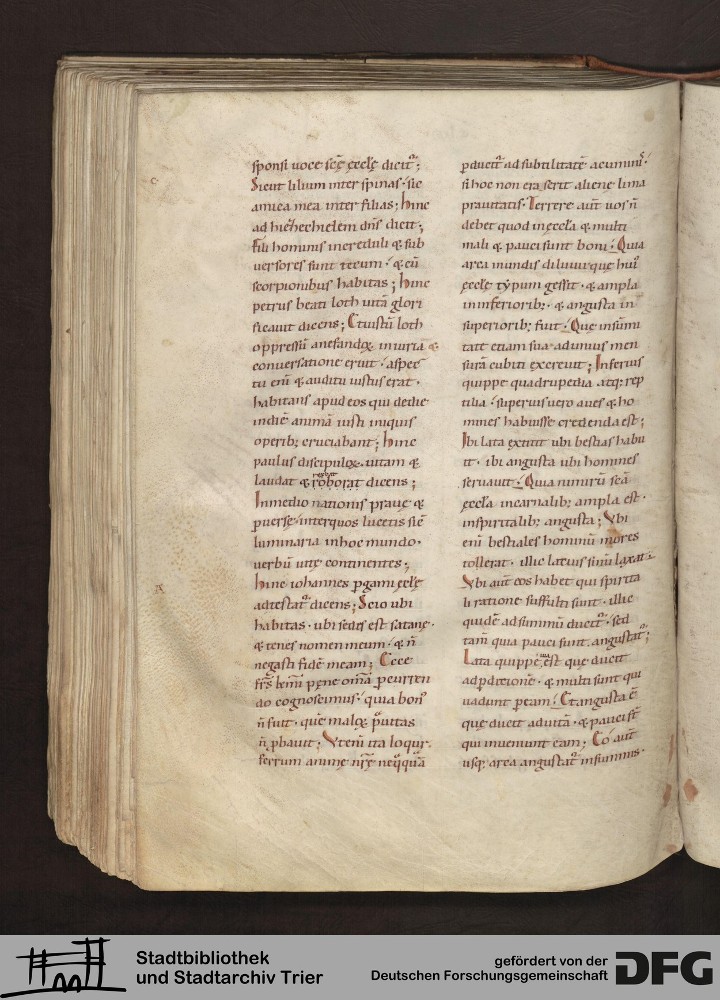 sponsi uoce scę ęcclę dicit᷑;
Sicut lilium inter spinas· sic
amica mea inter filias; hinc
ad hiezhechielem dn̄s dicit;
Fili hominis increduli & sub
uersores sunt tecum· & cū
scorpionibus habitas; hinc
petrus beati loth uitā glori
ficauit dicens; Et iustū loth
oppressū a nefandoꝝ iniuria &
conuersatione eruit· aspec
tu enī & auditu iustus erat·
habitans apud eos qui de die
in diē animā iusti iniquis
operib; cruciabant; hinc
paulus discipuloꝝ uitam &
laudat & roborat dicens;
In medio nationis prauę &
ꝑuersę· inter quos lucetis sic̄
luminaria in hoc mundo·
uerbū uitę continentes;
hinc iohannes ꝑgami ęcclę
adtestat᷑ dicens; Scio ubi
habitas· ubi sedes est satanę·
& tenes nomen meum· & n̄
negasti fidē meam; Ecce
fr̄s km̄i pęne om̄a ꝑcurren
do cognoscimus· quia bon᷒
n̄ fuit· quē maloꝝ p̄uitas
n̄ ꝓbauit; Vt enī ita loqur·
ferrum animę nr̄ę neq̄quā
ꝑducit᷑ ad subtilitatē acuminis·
si hoc non eraserit alienę lima
prauitatis· Terrere aūt uos n̄
debet quod in ęccl̄a & multi
mali & pauci sunt boni· Quia
arca in undis diluuii quę hui᷒
ęcclę typum gessit· & ampla
in inferiorib;· & angusta in
superiorib; fuit· Quę in sūmi
tate etiam sua ad unius men
surā cubiti excreuit; Inferius
quippe quadrupedia atq; rep
tilia· superius uero aues & ho
mines habuisse credenda est;
Ibi lata extitit ubi bestias habu
it· ibi angusta ubi homines
seruauit· Quia nimirū scā
ęccl̄a in carnalib; ampla est·
in spiritalib; angusta; Vbi
enī bestiales hominū mores
tollerat· illic latius sinū laxat·
Vbi aūt eos habet qui spirita
li ratione suffulti sunt· illic
quidē ad summū ducit᷑· sed
tam̄ quia pauci sunt angustat᷑;
Lata quippe uia est quę ducit
ad ꝑditionē· & multi sunt qui
uadunt ꝑ eam· Et angusta ē
quę ducit ad uitā· & pauci st̄
qui inueniunt eam; Eo aūt
usq; arca angustat᷑ in summis·
Stadtbibliothek
und Stadtarchiv Trier
gefördert von der
Deutschen Forschungsgemeinschaft
DFG